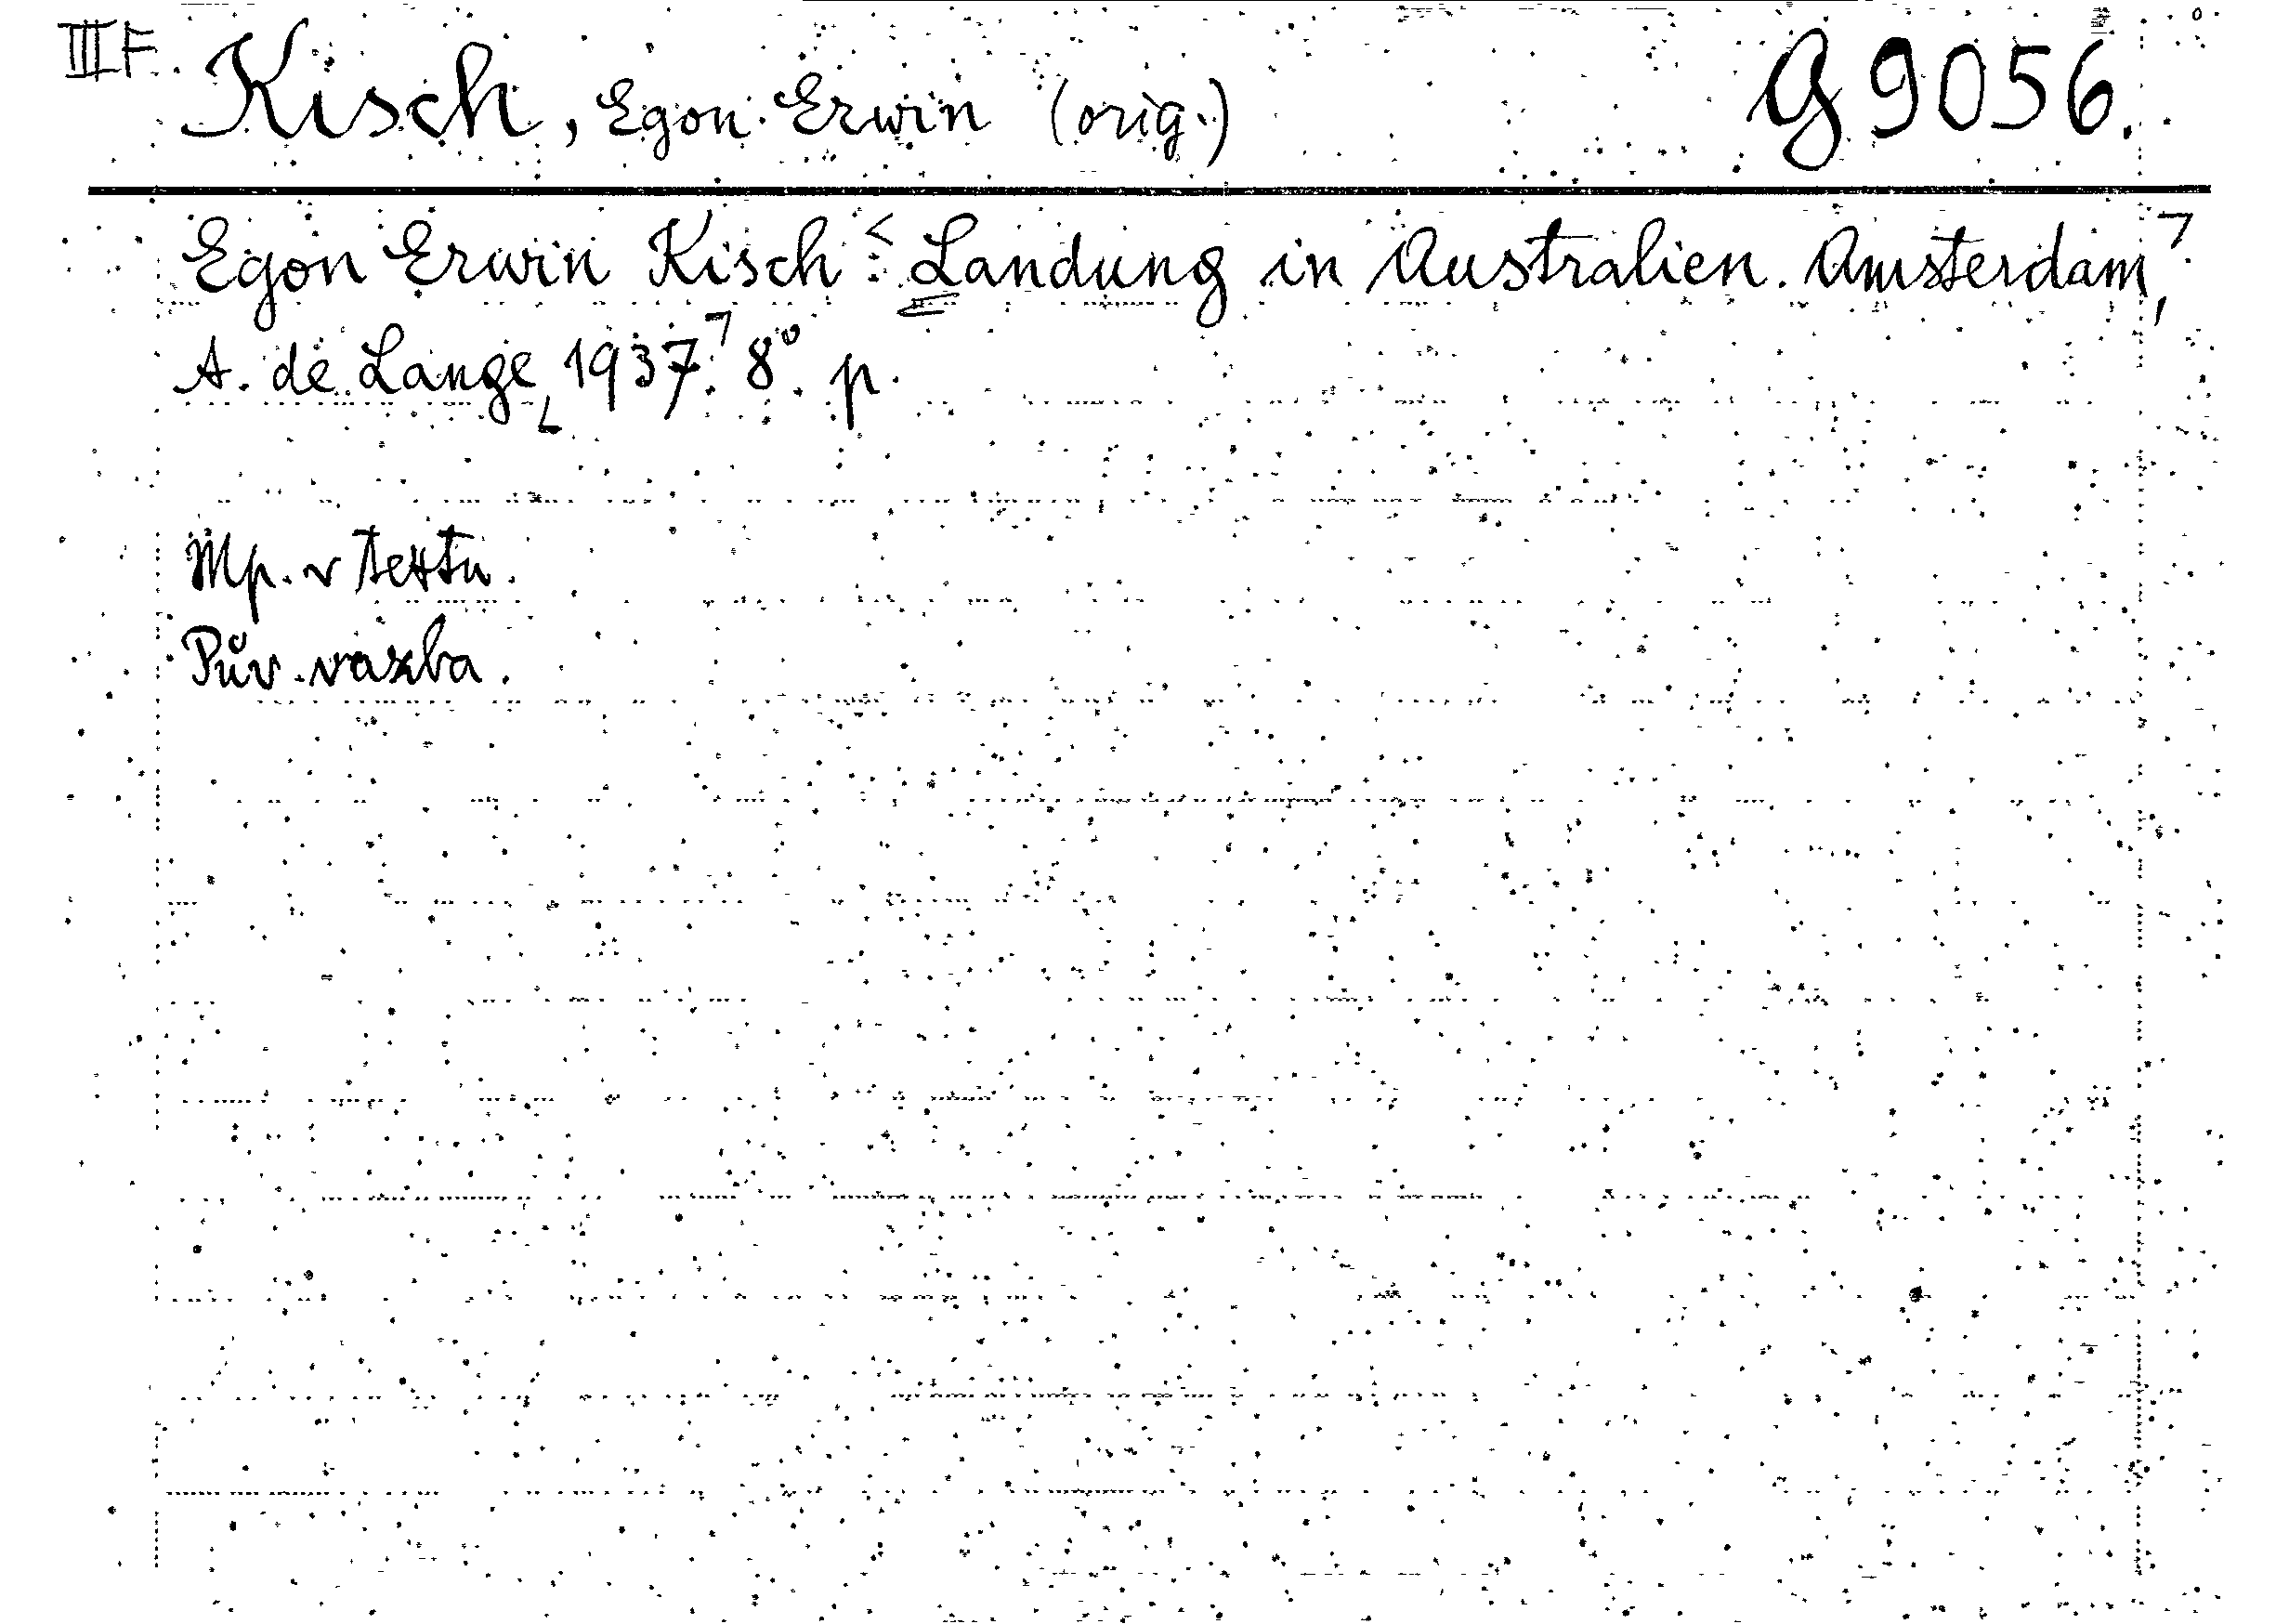 III F. Kisch, Egon Erwin (orig.) G 9056.
Egon Erwin Kisch: Landung in Australien. Amsterdam,
A. de Lange, 1937. 8°. p.
Mp. v textu.
Pův. vazba.